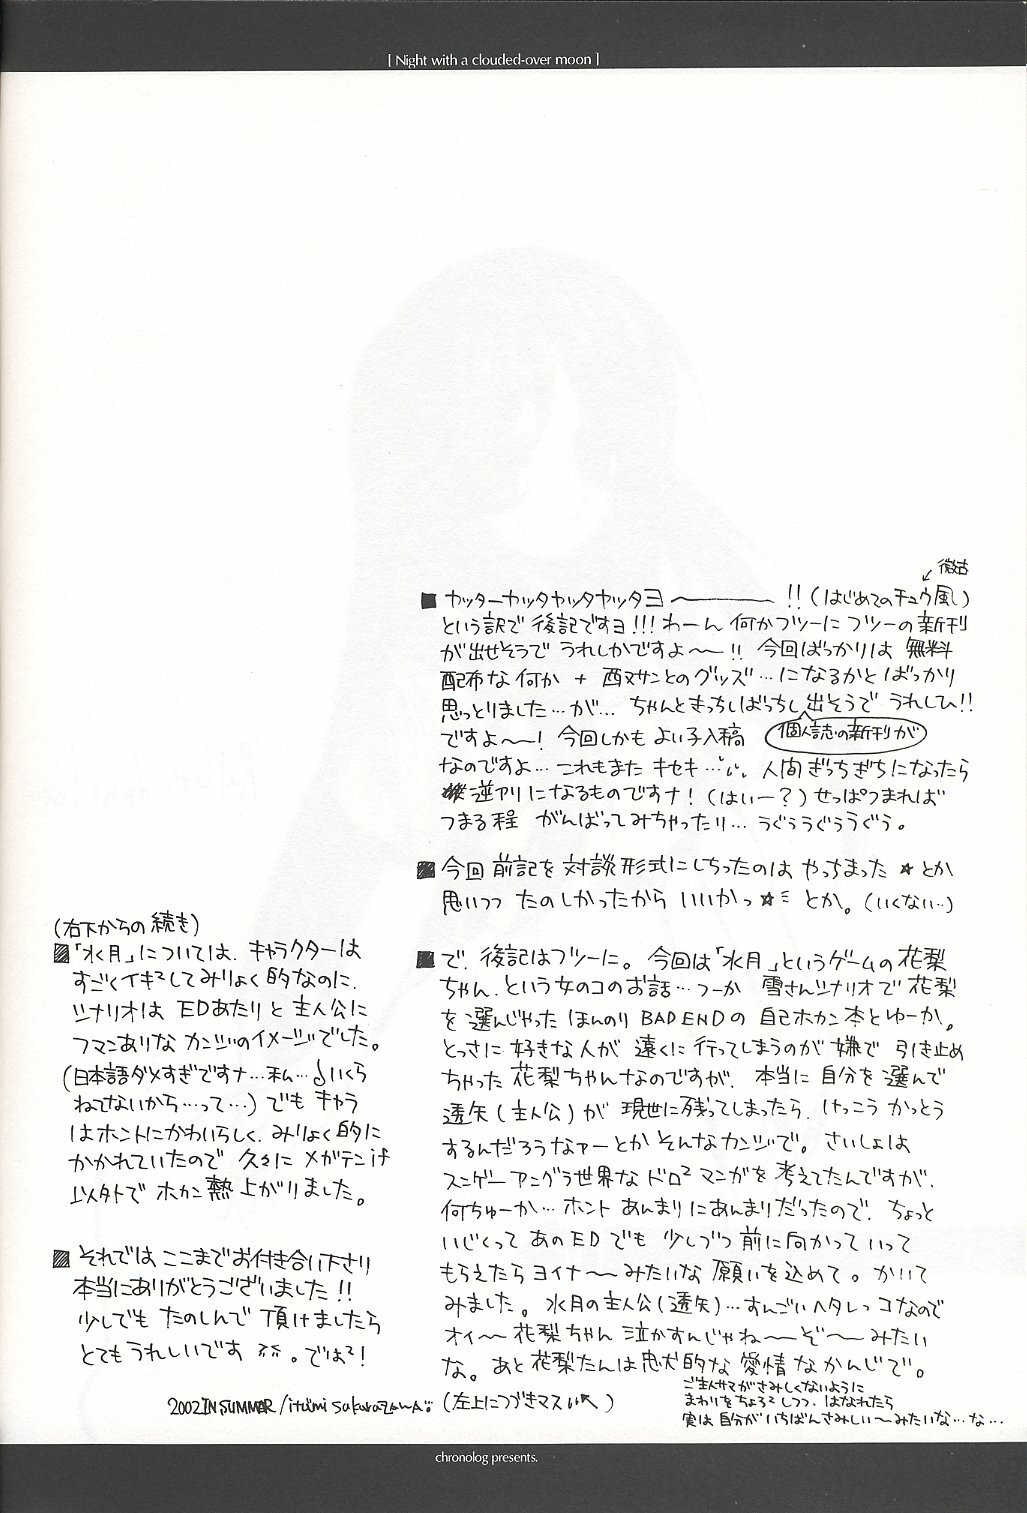 [ Night with a clouded-over moon ]
微古
■ ヤッターヤッタヤッタヤッタヨ〜〜!!(はじめてのチュウ風)
という訳で 後記ですヨ!!! わーん 何かフツーに フツーの新刊
が出せそうで うれしかですよ〜〜!! 今回ばっかりは 無料
配布な何か + 酉ヌサンとのグッズ…になるかとばっかり
思っとりました…が… ちゃんときっちしばっちし出そうで うれしひ!!
個人誌の新刊が
ですよ〜〜! 今回しかもよい子入稿
なのですよ…これもまたキセキ… 人間ぎっちぎちになったら
逆アリになるものですナ!(はいー?)せっぱつまれば
つまる程 がんばってみちゃったり… うぐぅうぐぅうぐぅ。
■ 今回 前記を 対談形式にしちったのは やっちまった☆とか
思いつつ たのしかったから いいかっ☆ミ とか。(いくない…)
■ で、後記はフツーに。今回は「水月」というゲームの花梨
ちゃん、という女のコのお話…つーか 雪さんシナリオで花梨
を選んじゃった ほんのり BAD ENDの 自己ホカン本とゆーか。
とっさに 好きな人が 遠くに行ってしまうのが嫌で 引き止め
ちゃった 花梨ちゃんなのですが、本当に自分を選んで
透矢(主人公)が 現世に残ってしまったら、けっこう かっとう
するんだろうなァーとか そんなカンジで。さいしょは
スンゲー アングラ世界な ドロ² マンガを 考えてたんですが、
何ちゅーか… ホント あんまりにあんまりだったので、ちょっと
いじくって あのEDでも 少しづつ 前に向かって いって
もらえたら ヨイナ〜〜みたいな 願いを込めて。かいて
みました。水月の主人公(透矢)…すんごいヘタレっコなので
オイ〜〜花梨ちゃん 泣かすんじゃね〜〜ぞ〜〜 みたい
な。あと 花梨たんは忠犬的な 愛情なかんじで。
ご主人サマがさみしくないように
まわりをちょろ²しつつ、はなれたら
実は自分がいちばんさみしい〜みたいな…な…
(左上につづきマス)
(右下からの続き)
■「水月」については、キャラクターは
すごくイキ²してみりょく的なのに、
シナリオは EDあたりと 主人公に
フマンありな カンジのイメージでした。
(日本語ダメすぎですナ…私… いくら
ねてないから…って…) でも キャラ
はホントにかわいらしく、みりょく的に
かかれていたので 久々に メガテンif
以外で ホカン熱上がりました。
■ それでは ここまでお付き合い下さり
本当にありがとうございました!!
少しでも たのしんで 頂けましたら
とてもうれしいです 。では²!
2002 IN SUMMER / itumi sakurazawa
chronolog presents.